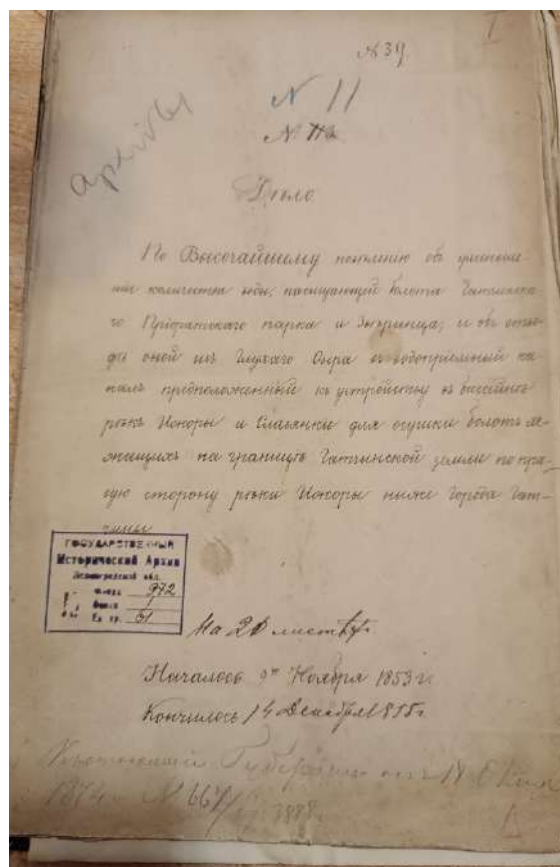 № 11
№ 112
Дѣло
По Высочайшему повелѣнію объ уменьше-
ніи количества воды, насыщающей болота Гатчинска-
го Пріоратскаго парка и Звѣринца, и объ отво-
дѣ оной изъ Глухаго Озера въ водопріемный ка-
налъ предположенный къ устройству въ бассейнѣ
рѣкъ Ижоры и Славянки для осушки болотъ ле-
жащихъ на границѣ Гатчинской земли по пра-
вую сторону рѣки Ижоры ниже Города Гат-
чины
ГОСУДАРСТВЕННЫЙ
Исторический Архив
Ленинградской обл.
Фонд 972
Опись 1
Ед. хр. 61
На 20 листахъ
Началось 9го Ноября 1853 г.
Кончилось 14 Декабря 1855 г.
1874 № 667/
3888